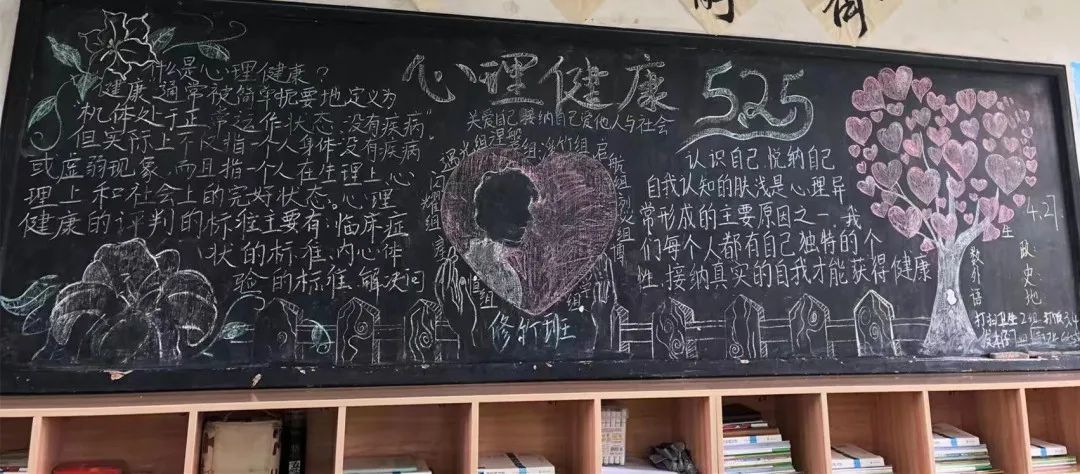 什么是心理健康？
健康通常被简单扼要地定义为
"机体处于正常运作状态，没有疾病"
但实际上不仅指一个人身体没有疾病
或虚弱现象，而且指一个人在生理上心
理上和社会上的完好状态。心理
健康的评判的标准主要有：临床症
状的标准、内心体
验的标准、解决问
心理健康 525
关爱自己 接纳自己 爱他人与社会
修竹班
认识自己 悦纳自己
自我认知的肤浅是心理异
常形成的主要原因之一，我
们每个人都有自己独特的个
性，接纳真实的自我才能获得健康
4.27
生 政：
数 史：
外 地：
语
打扫卫生